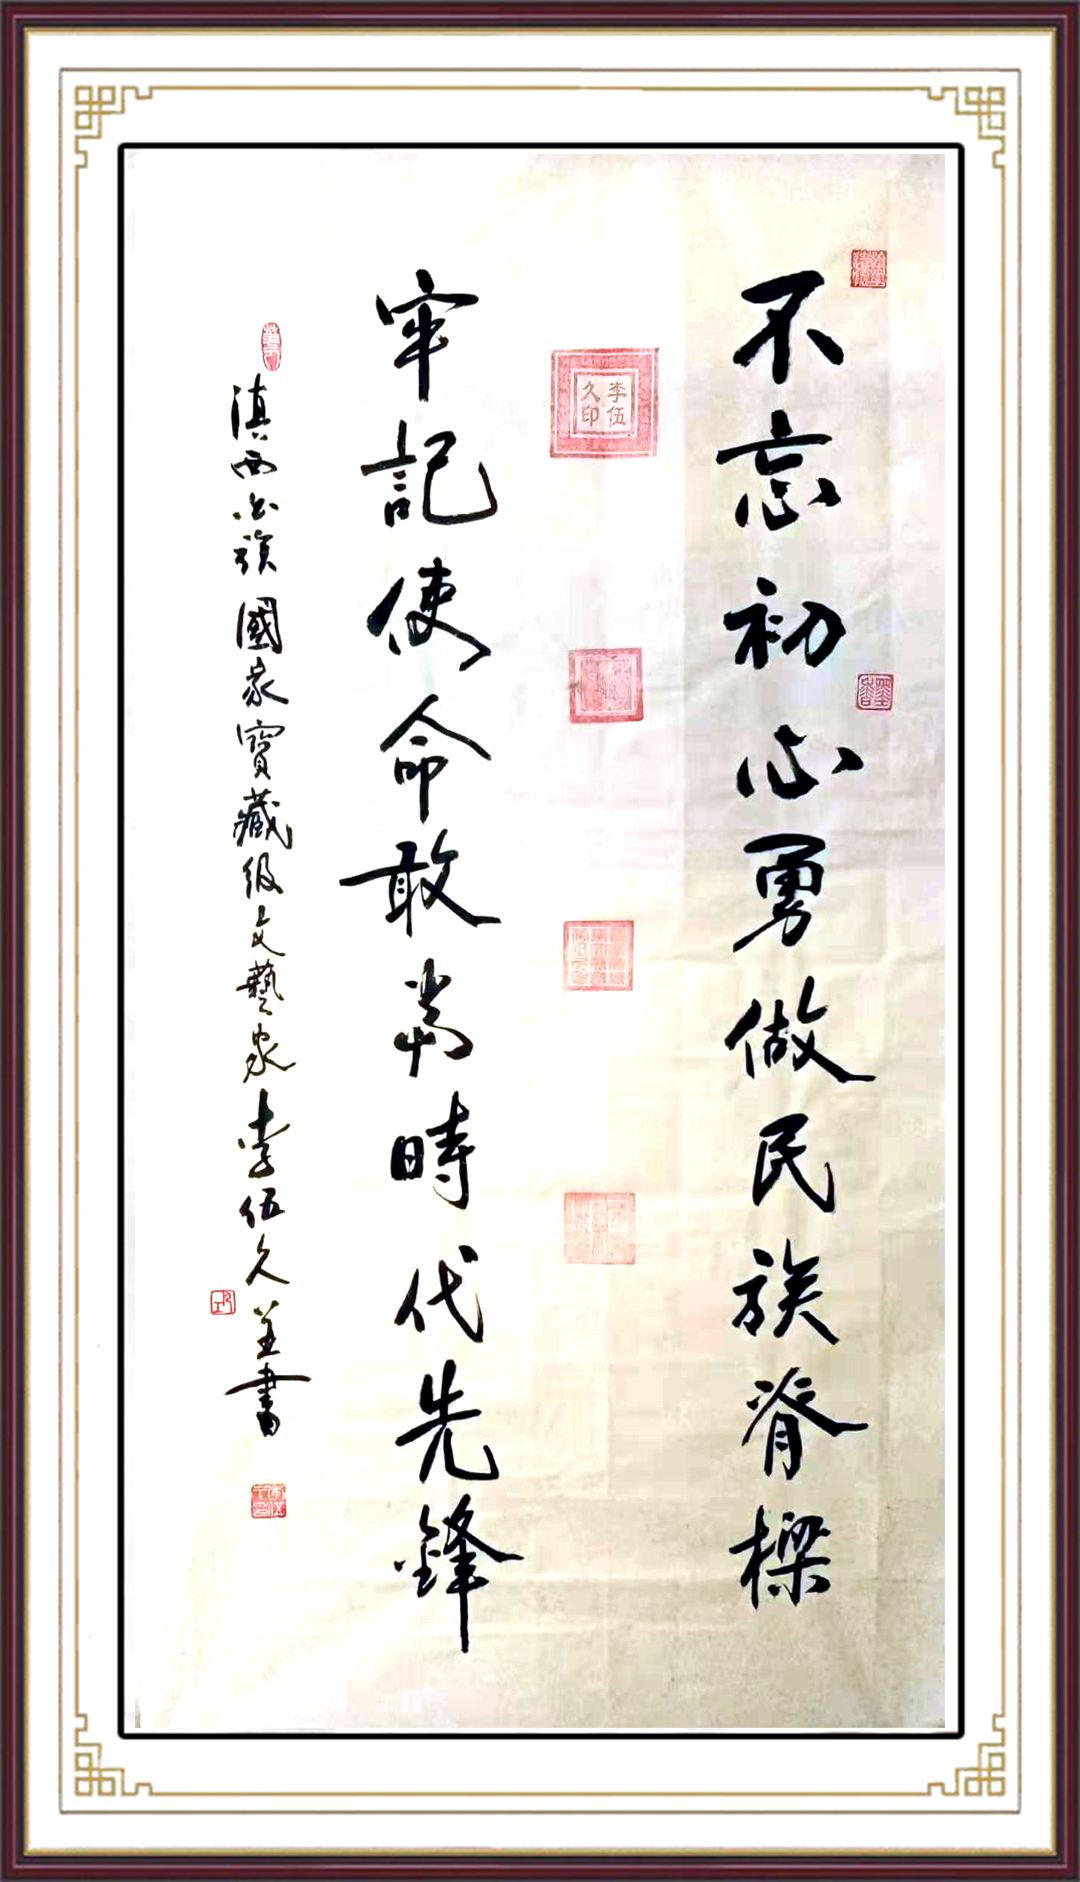 不忘初心勇做民族脊樑
牢記使命敢当時代先鋒
滇西白族國家寶藏级文藝家李伍久並書
李伍久印
墨香